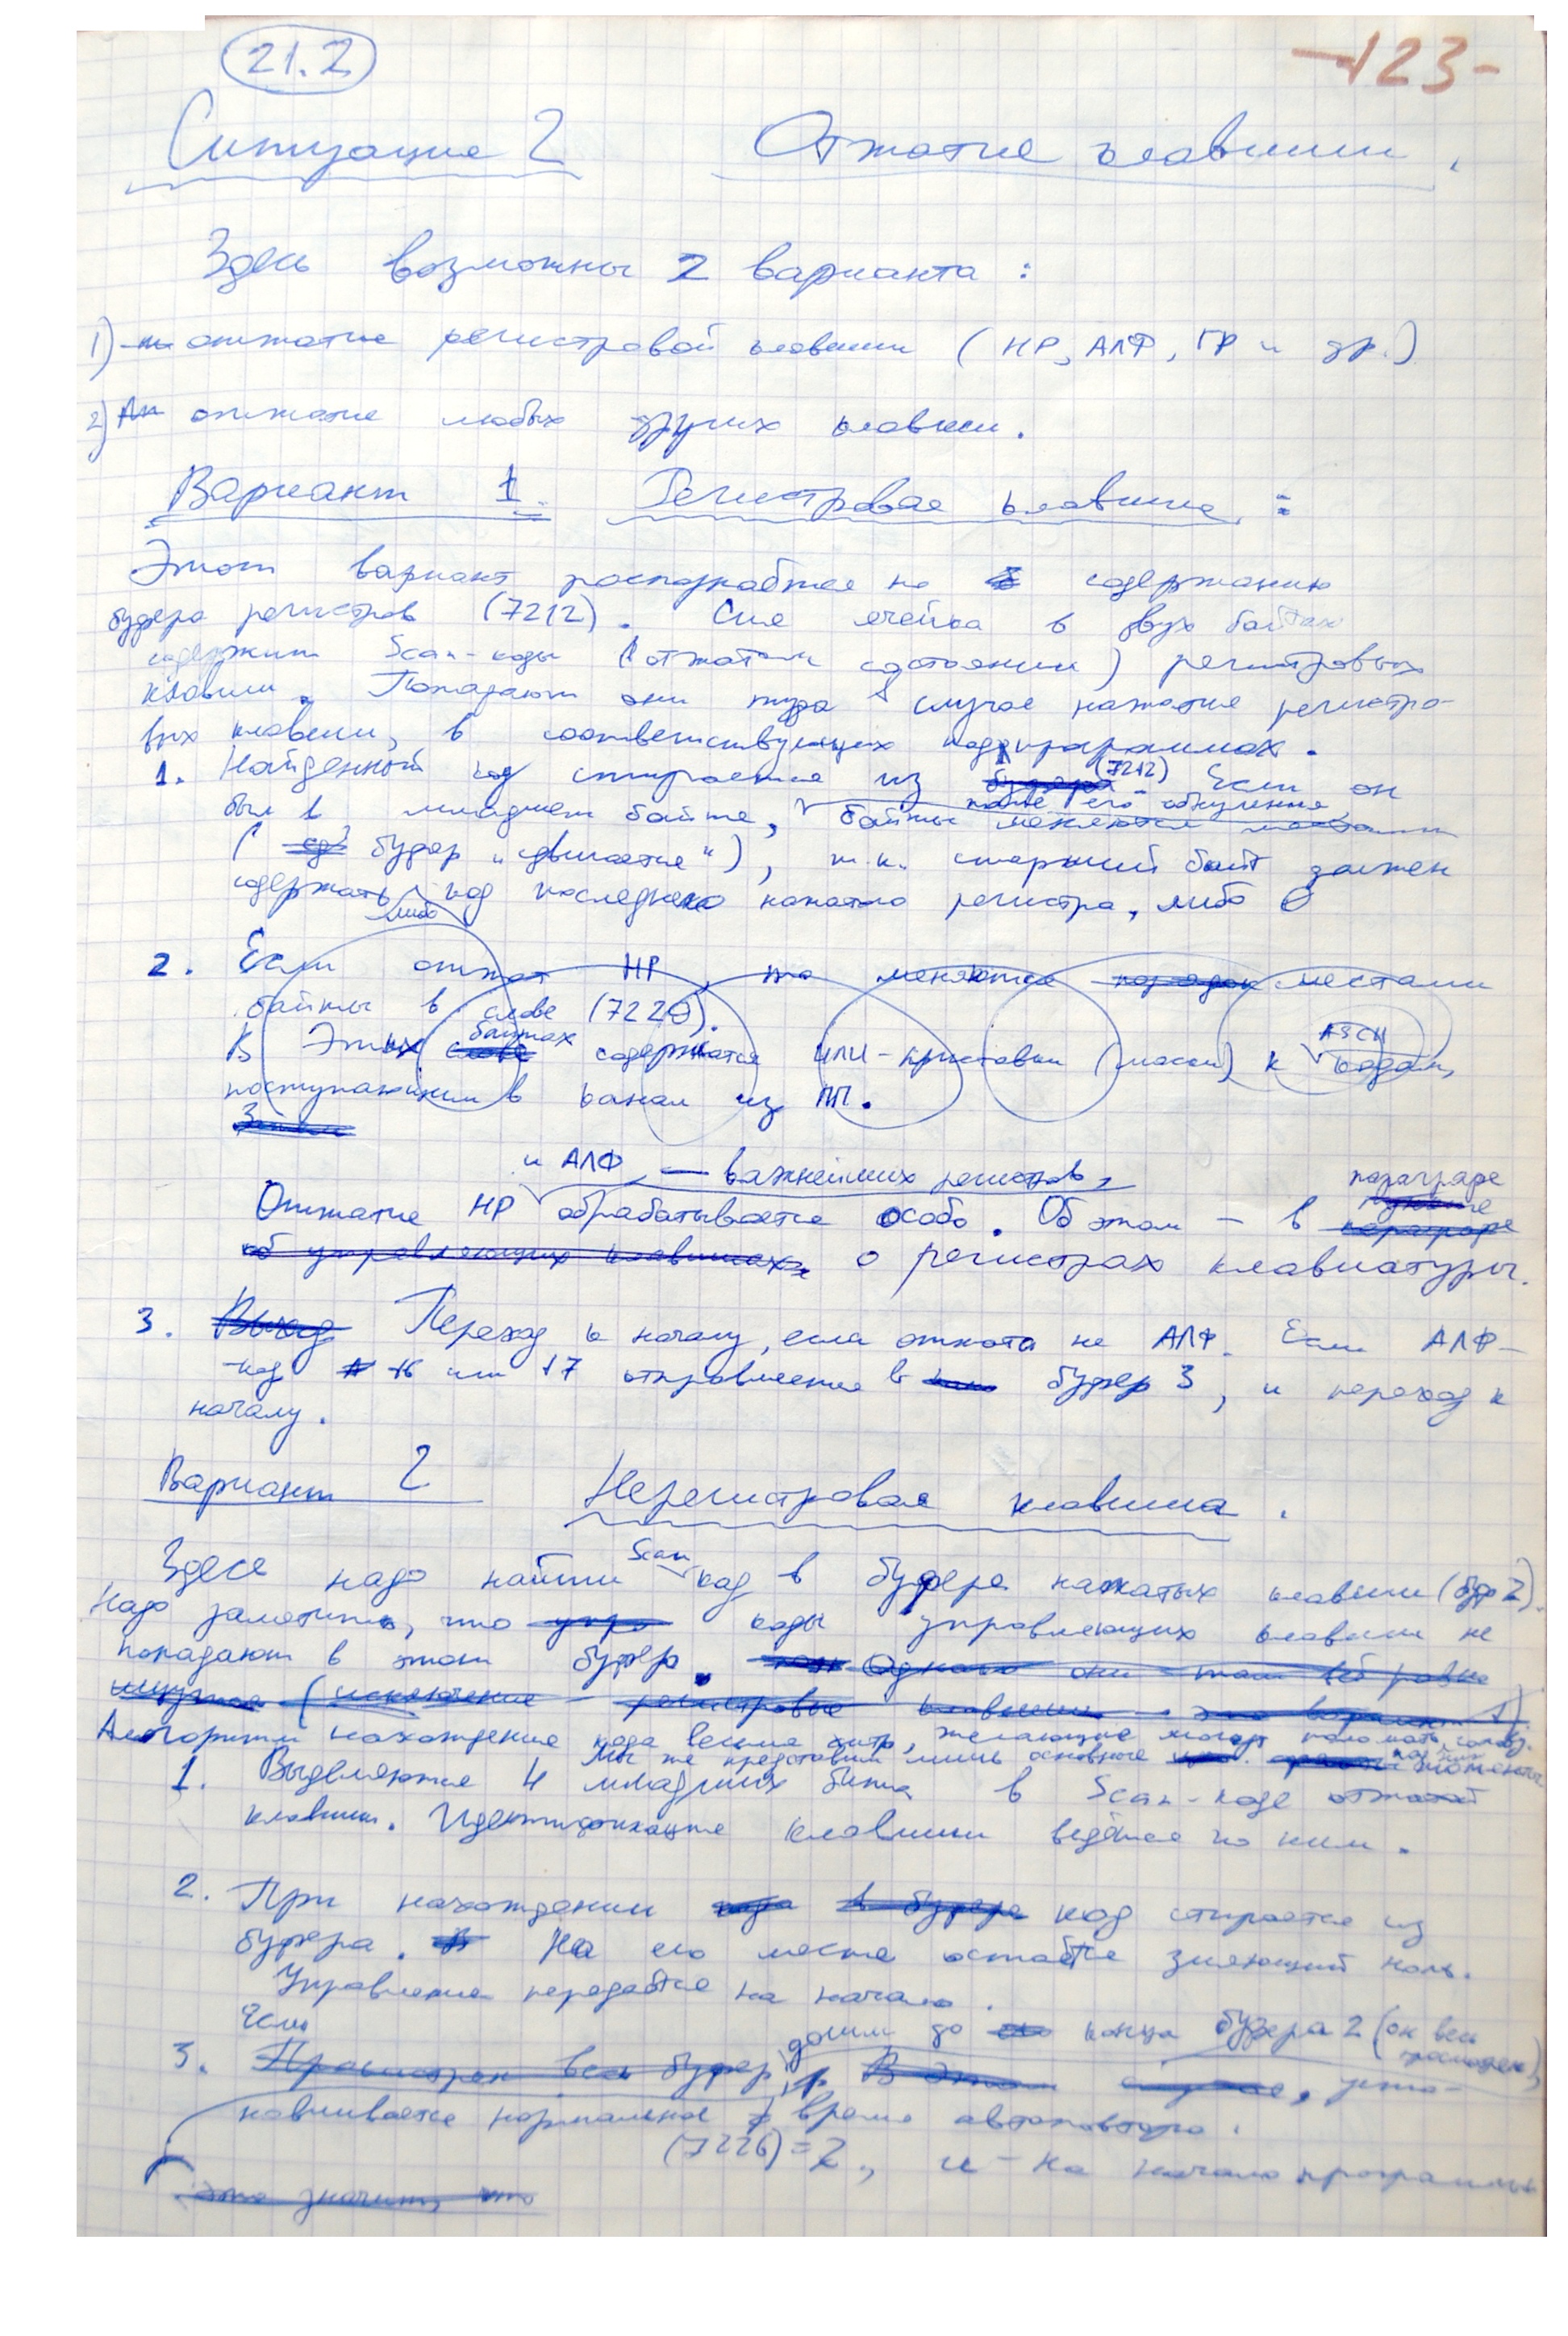 21.2
-123-
Ситуация 2 Отжатие клавиши.
Здесь возможны 2 варианта:
1) отжатие регистровой клавиши (НР, АЛФ, ГР и др.)
2) отжатие любых других клавиш.
Вариант 1. Регистровая клавиша:
Этот вариант распознаётся по содержанию
буфера регистров (7212). Сия ячейка в двух байтах
содержит Scan-коды (в отжатом состоянии) регистровых
клавиш. Попадают они туда в случае нажатия регистро-
вых клавиш, в соответствующих подпрограммах.
1. Найденный код стирается из (7212) Если он
был в младшем байте, после его обнуления байты меняются местами
(буфер "сдвигается"), т.к. старший байт должен
содержать либо код последнего нажатого регистра, либо 0
2. Если отжат НР, то меняются местами
байты в слове (7220).
В Этих байтах содержатся ИЛИ-приставки (маски) к ASCII кодам,
поступающим в канал из ПП.
и АЛФ, — важнейших регистров,
Отжатие НР обрабатывается особо. Об этом - в параграфе
о регистрах клавиатуры.
3. Переход к началу, если отжата не АЛФ. Если АЛФ-
код 16 или 17 отправляется в буфер 3, и переход к
началу.
Вариант 2 Нерегистровая клавиша.
Здесь надо найти Scan код в буфере нажатых клавиш (буф 2).
Надо заметить, что коды управляющих клавиш не
попадают в этот буфер.
Однако они там всё равно
(исключение - регистровые клавиши - это вариант 1).
Алгоритм нахождения кода весьма хитр, желающие могут поломать голову.
Мы же представим лишь основные моменты
1. Выделяются 4 младших бита в Scan-коде отжатой
клавиши. Идентификация клавиши ведётся по ним.
2. При нахождении код стирается из
буфера. На его месте остаётся зияющий ноль.
Управление передаётся на начало.
3. Если дошли до конца буфера 2 (он весь просмотрен), уста-
навливается нормальное время автоповтора.
(7226)=2, и - на начало программы
Это значит, что